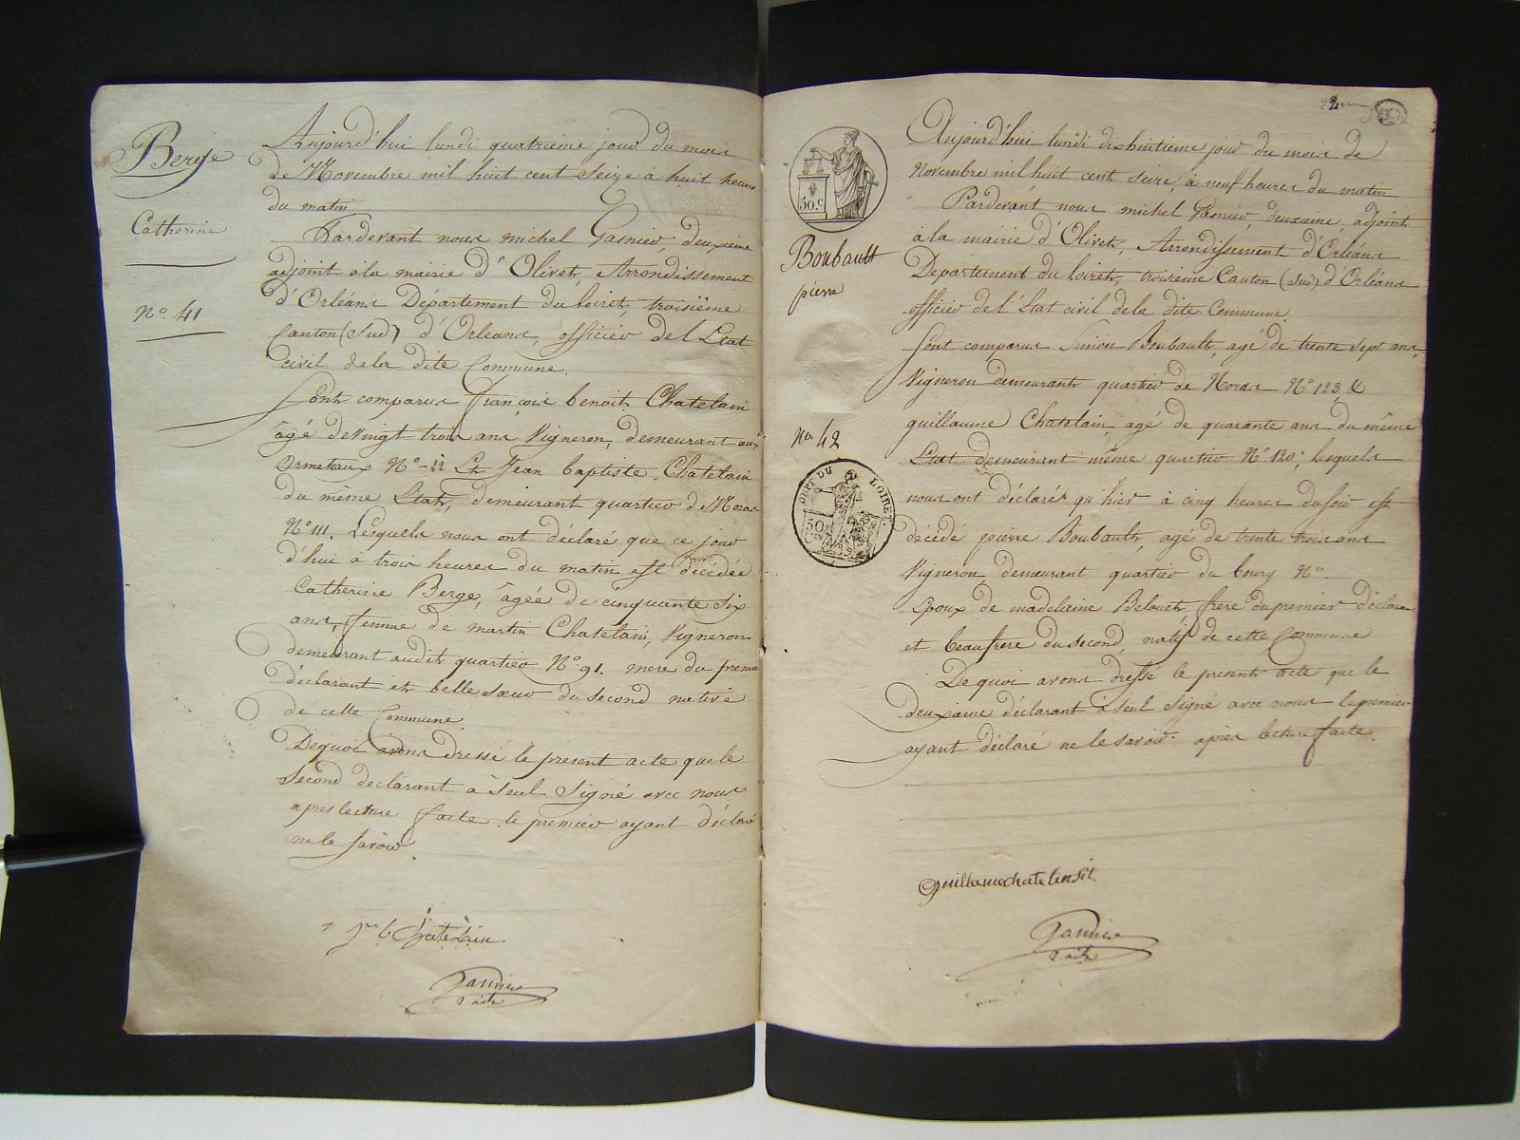 Berge
Catherine
No. 41
Aujourd'hui lundi quatrieme jour du mois
de Novembre mil huit cent seize à huit heures
du matin
Pardevant nous michel Gasnier, deuxieme
adjoint à la mairie d'Olivet, Arrondissement
d'Orléans Département du Loiret, troisième
Canton (Sud) d'Orléans, officier de l'Etat
civil de la dite Commune.
Sont comparus françois benoit Chatelain
âgé de vingt trois ans Vigneron, demeurant aux
Ormetaux No. 22 Et Jean baptiste Chatelain
du même Etat, demeurant quartier de Noras
No. 111. Lesquels nous ont déclaré que ce jour
d'hui à trois heures du matin est décédée
Catherine Berge, âgée de cinquante six
ans, femme de martin Chatelain, Vigneron
demeurant audit quartier No. 91. mere du premier
déclarant et belle sœur du second native
de cette Commune
De quoi avons dressé le present acte que le
second declarant à seul Signé avec nous
apres lecture faite le premier ayant déclaré
ne le savoir
jn b Chatelain
Gasnier
adjt
30. c
Boubault
pierre
No. 42
DEPT DU LOIRET
50
Aujourd'hui lundi dix huitieme jour du mois de
Novembre mil huit cent seize, à neuf heures du matin
Pardevant nous michel Gasnier, deuxieme adjoint
à la mairie d'Olivet, Arrondissement d'Orléans
Departement du loiret, troisieme Canton (Sud) d'Orléans
officier de l'Etat civil de la dite Commune
Sont comparus Simon Boubault, agé de trente sept ans,
Vigneron demeurant quartier de Noras No. 123, &
guillaume Chatelain, agé de quarante ans du même
Etat demeurant même quartier No. 120; lesquels
nous ont déclaré qu'hier à cinq heures du soir est
décédé pierre Boubault, agé de trente trois ans
Vigneron, demeurant quartier du bourg No.
Epoux de madelaine Belouet frere du premier déclarant
et beaufrere du second, natif de cette Commune
De quoi avons dressé le present acte que le
deuxieme déclarant à seul Signé avec nous le premier
ayant déclaré ne le savoir après lecture faite.
Guillaume chatelin
Gasnier
adjt